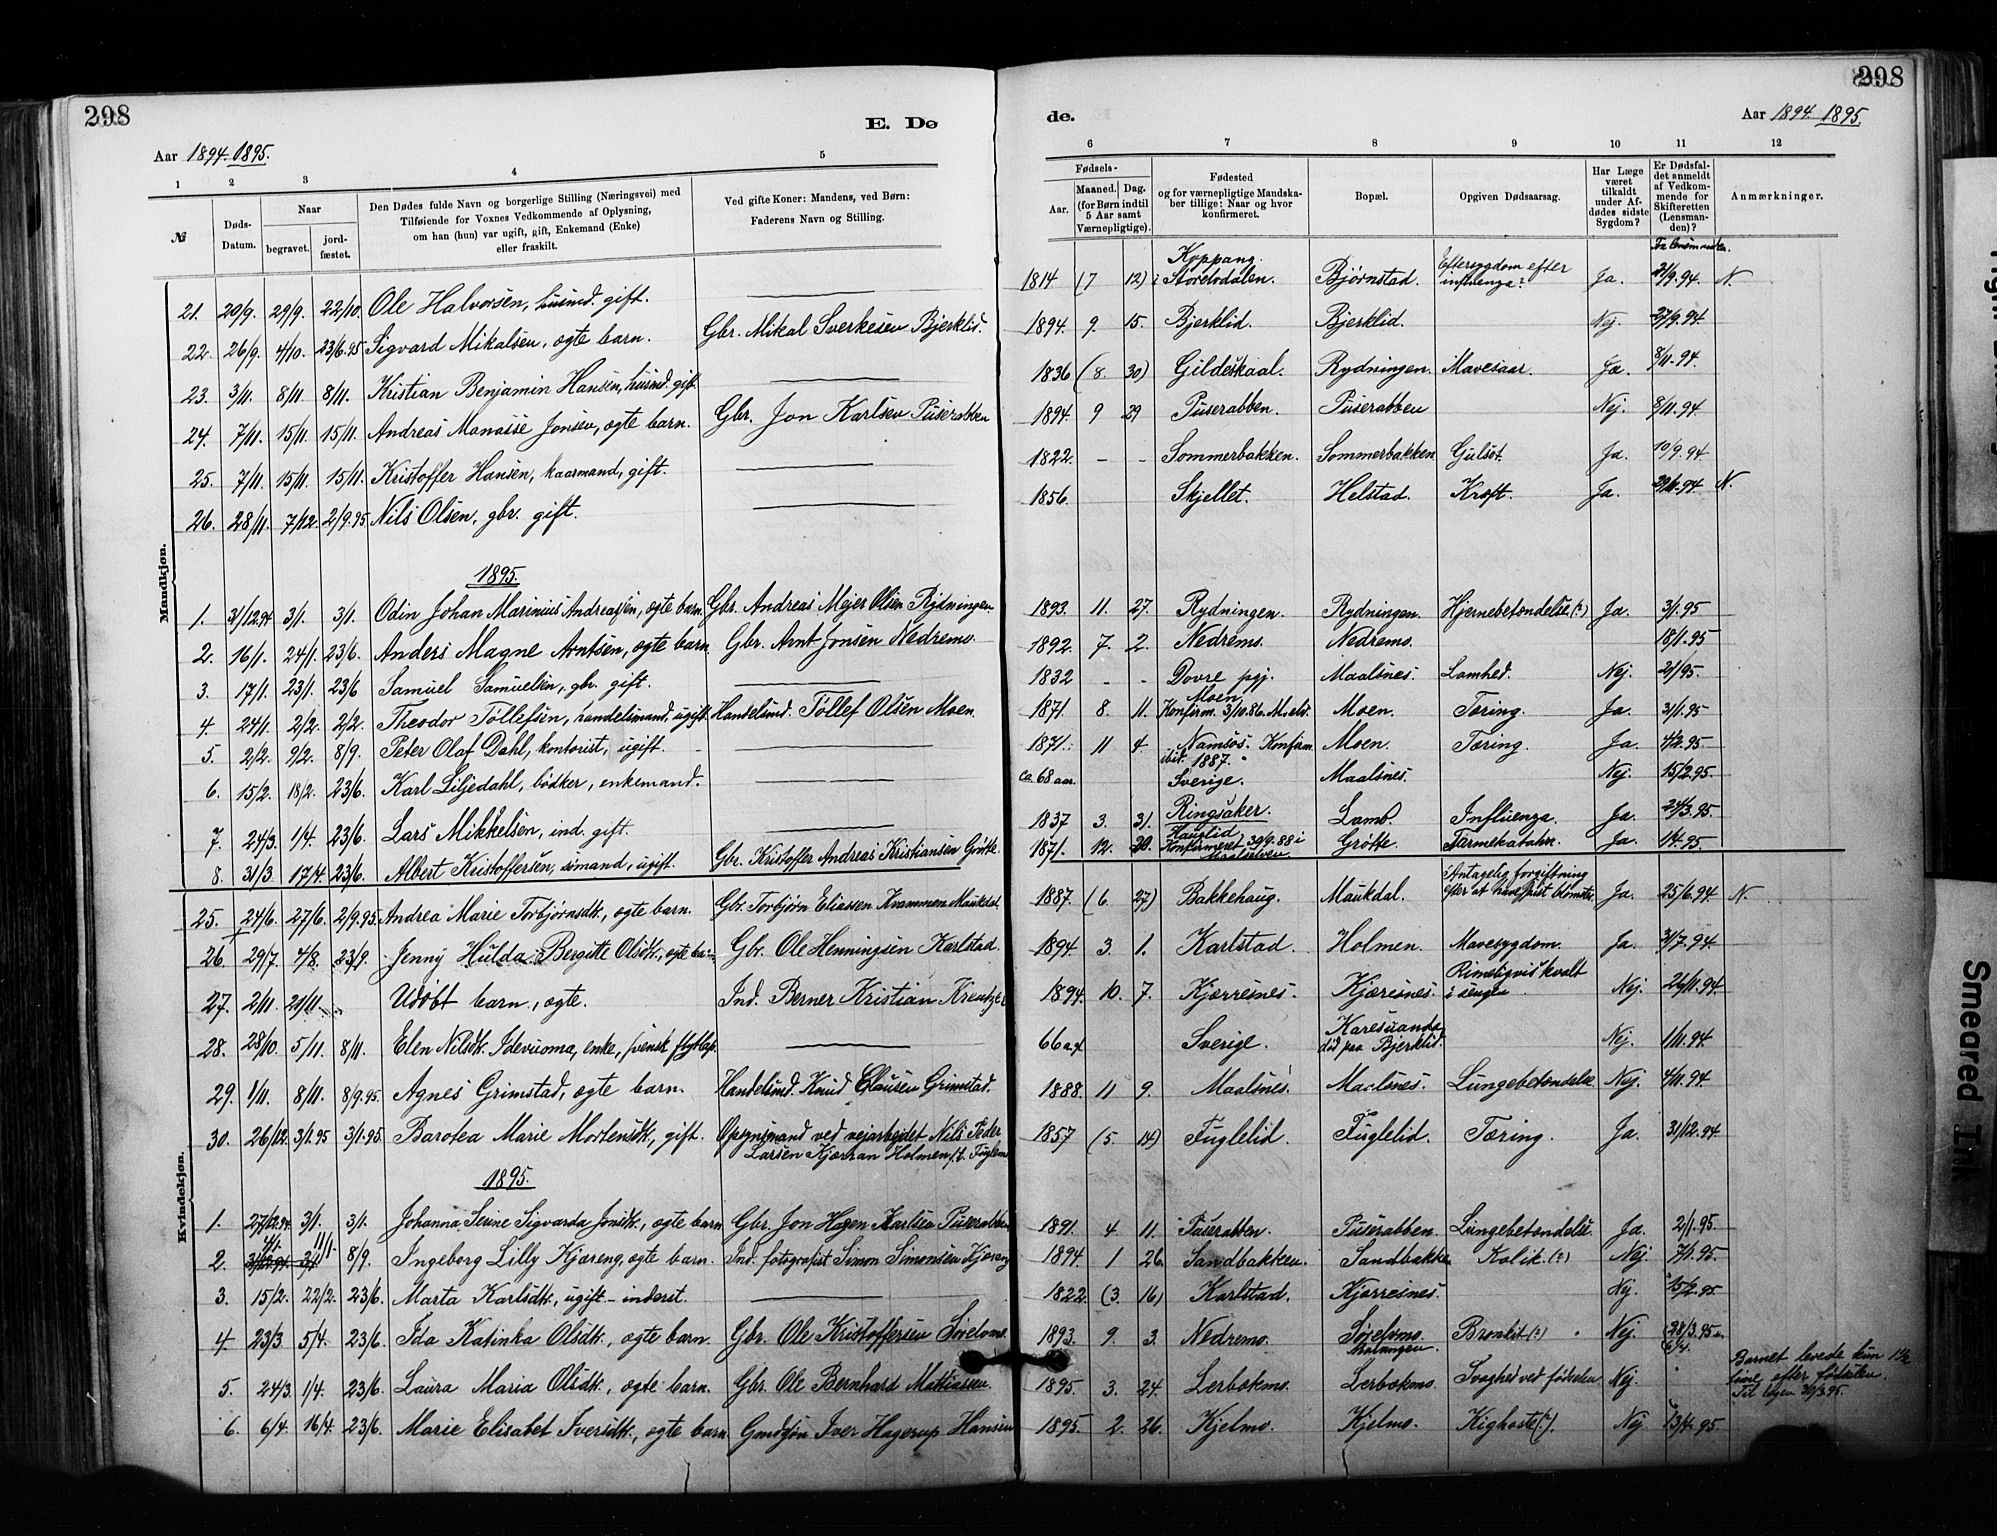 298
E. Dø
Aar 1894. 1895.
1 2 3 4 5
№
Døds-
Datum.
Naar
begravet.
jord-
fæstet.
Den Dødes fulde Navn og borgerlige Stilling (Næringsvei) med
Tilføiende for Voxnes Vedkommende af Oplysning,
om han (hun) var ugift, gift, Enkemand (Enke)
eller fraskilt.
Ved gifte Koner: Mandens, ved Børn:
Faderens Navn og Stilling.
Mandkjøn.
21. 20/9. 29/9. 22/10. Ole Halvorsen, husmd. gift.
22. 26/9. 4/10. 23/6.95 Sigvard Mikalsen, ægte barn. Gbr. Mikal Sverkesen Bjerklid.
23. 3/11. 8/11. 8/11. Kristian Benjamin Hansen, husmd. gift.
24. 7/11. 15/11. 15/11. Andreas Manasse Jonsen, ægte barn. Gbr. Jon Karlsen Puserabben
25. 7/11. 15/11. 15/11. Kristoffer Hansen, kaarmand, gift.
26. 28/11. 7/12. 2/9.95 Nils Olsen, gbr. gift.
1895.
1. 31/12.94 3/1. 3/1. Odin Johan Marinius Andreassen, ægte barn. Gbr. Andreas Mejer Olsen Rydningen
2. 16/1. 24/1. 23/6. Anders Magne Arntsen, ægte barn. Gbr. Arnt Jonsen Nedremo.
3. 17/1. 23/1. 23/6 Samuel Samuelsen, gbr. gift.
4. 24/1. 2/2. 2/2. Theodor Tollefsen, handelsmand, ugift. Handelsmd. Tollef Olsen Moen.
5. 2/2. 9/2. 8/9. Peter Olaf Dahl, kontorist, ugift.
6. 15/2. 18/2. 23/6. Karl Liljedahl, bødker, enkemand.
7. 24/3. 1/4. 23/6. Lars Mikkelsen, ind. gift.
8. 31/3. 17/4. 23/6. Albert Kristoffersen, sømand, ugift. Gbr. Kristoffer Andreas Kristiansen Grøtte.
Kvindekjøn.
25. 24/6. 27/6. 2/9.95. Andrea Marie Torbjørnsdt., ægte barn. Gbr. Torbjørn Eliassen Kvammen Maukdal.
26. 29/7. 4/8. 23/9. Jenny Hulda Bergitte Olsdt., ægte barn Gbr. Ole Henningsen Karlstad.
27. 2/11. 20/11. Udøbt barn, ægte. Ind. Berner Kristian Kreutzer
28. 28/10. 5/11. 8/11. Elen Nilsdt. Idevuoma, enke, svensk flytlap.
29. 1/11. 8/11. 8/9.95. Agnes Grimstad, ægte barn. Handelsmd. Knud Clausen Grimstad.
30. 26/12. 3/1.95 3/1.95. Barotea Marie Mortensdt., gift. Opsynsmand ved vejarbejdet Nils Peder
Larsen Kjærran Holmen, f.t. Fuglemo
1895.
1. 27/12.94 3/1. 3/1. Johanna Serine Sigvarda Jonsdt., ægte barn Gbr. Jon Hagen Karlsen Puserabben
4/1. 11/1.
2. 8/9. Ingeborg Lilly Kjæreng, ægte barn. Ind. fotografist Simon Simonsen Kjæreng
3. 15/2. 22/2. 23/6. Marta Karlsdt., ugift - inderst.
4. 23/3 5/4. 23/6. Ida Katinka Olsdt., ægte barn. Gbr. Ole Kristoffersen Sørelvmo.
5. 24/3. 1/4. 23/6. Laura Maria Olsdt., ægte barn. Gbr. Ole Bernhard Mathiassen.
6. 6/4. 16/4. 23/6. Marie Elisabet Iversdt., ægte barn Gmdsøn Iver Hagerup Hansen
298
de.
Aar 1894. 1895.
6 7 8 9 10 11 12
Fødsels-
Aar.
Maaned. Dag.
(for Børn indtil
5 Aar samt
Værnepligtige).
Fødested
og for værnepligtige Mandska-
ber tillige: Naar og hvor
konfirmeret.
Bopæl.
Opgiven Dødsaarsag.
Har Læge
været
tilkaldt
under Af-
dødes sidste
Sygdom?
Er Dødsfal-
det anmeldt
af Vedkom-
mende for
Skifteretten
(Lensman-
den)?
Anmærkninger.
Koppang Eftersygdom efter
1814 (7 12) i Storelvdalen. Bjørnstad. influenza? Ja. 21/9.94. N.
1894. 9. 15. Bjerklid. Bjerklid. Nej. 27/9.94.
1836 (8. 30) Gildeskaal. Rydningen. Mavesaar. Ja. 8/11.94.
1894. 9 29 Puserabben. Puserabben Nej. 8/11.94
1822. - - Sommerbakken. Sommerbakken. Gulsot. Ja. 10/9.94
1856. Skjellet. Helstad. Kræft. Ja. 29/11.94. N.
1893. 11. 27. Rydningen. Rydningen. Hjernebetændelse (?) Ja. 3/1.95
1892. 7. 2. Nedremo. Nedremo. 18/1.95
1832 - - Dovre pgj. Maalsnes. Lamhed. Nej. 21/95.
Moen
1871. 8. 11. Konfirm. 3/10.86. M.selv. Moen. Tæring. Ja. 31/1.95
1871. 11 4. Namsos. Konfirm. Moen. Tæring. Ja. 4/2.95
ibid. 1887.
ca. 68 aar. Sverige. Maalsnes. Nej. 15/2.95.
1837 3. 31. Ringsaker. Lamb. Influenza. Ja. 24/3.95.
Hauglid
1871. 12. 20. Konfirmeret 30/9.88 i Grøtte. Tarmekatahr. Ja. 1/4.95
Maalselven
Antagelig forgiftning
1887 (6. 27) Bakkehaug. Maukdal. efter at have spist blomster. Ja. 25/6.94 N.
1894. 3. 1. Karlstad. Holmen. Mavesygdom. Ja. 31/7.94
Rimeligvis kvalt
1894. 10. 7. Kjærresnes. Kjæresnes. i sengen Nej. 20/11.94
Karesuando
66 a. gl. Sverige. død paa Bjerklid. Nej. 1/11.94
1888. 11 9. Maalsnes. Maalsnes. Lungebetændelse Nej. 4/11.94
1857 (5. 14) Fuglelid. Fuglelid. Tæring. Ja. 31/12.94.
1891. 4. 11. Puserabben. Puserabben. Lungebetændelse Ja. 2/1.95
1894. 1 26. Sandbakken. Sandbakken Kolik (?) Nej. 7/1.95.
1822. (3. 16) Karlstad. Kjærresnes. Nej. 15/2.95
1893. 9. 3. Nedremo. Sørelvmo Bronkit (?) Nej. (28/3.95
Malangen 6/4.
1895. 3. 24. Lerbokmo. Lerbokmo. Svaghed ved fødselen. Nej. " Barnet levede kun 1½
time efter fødselen.
1895. 2. 26. Kjelmo. Kjelmo. Kighoste (?). Nej. 13/4.95
Smeared Ink